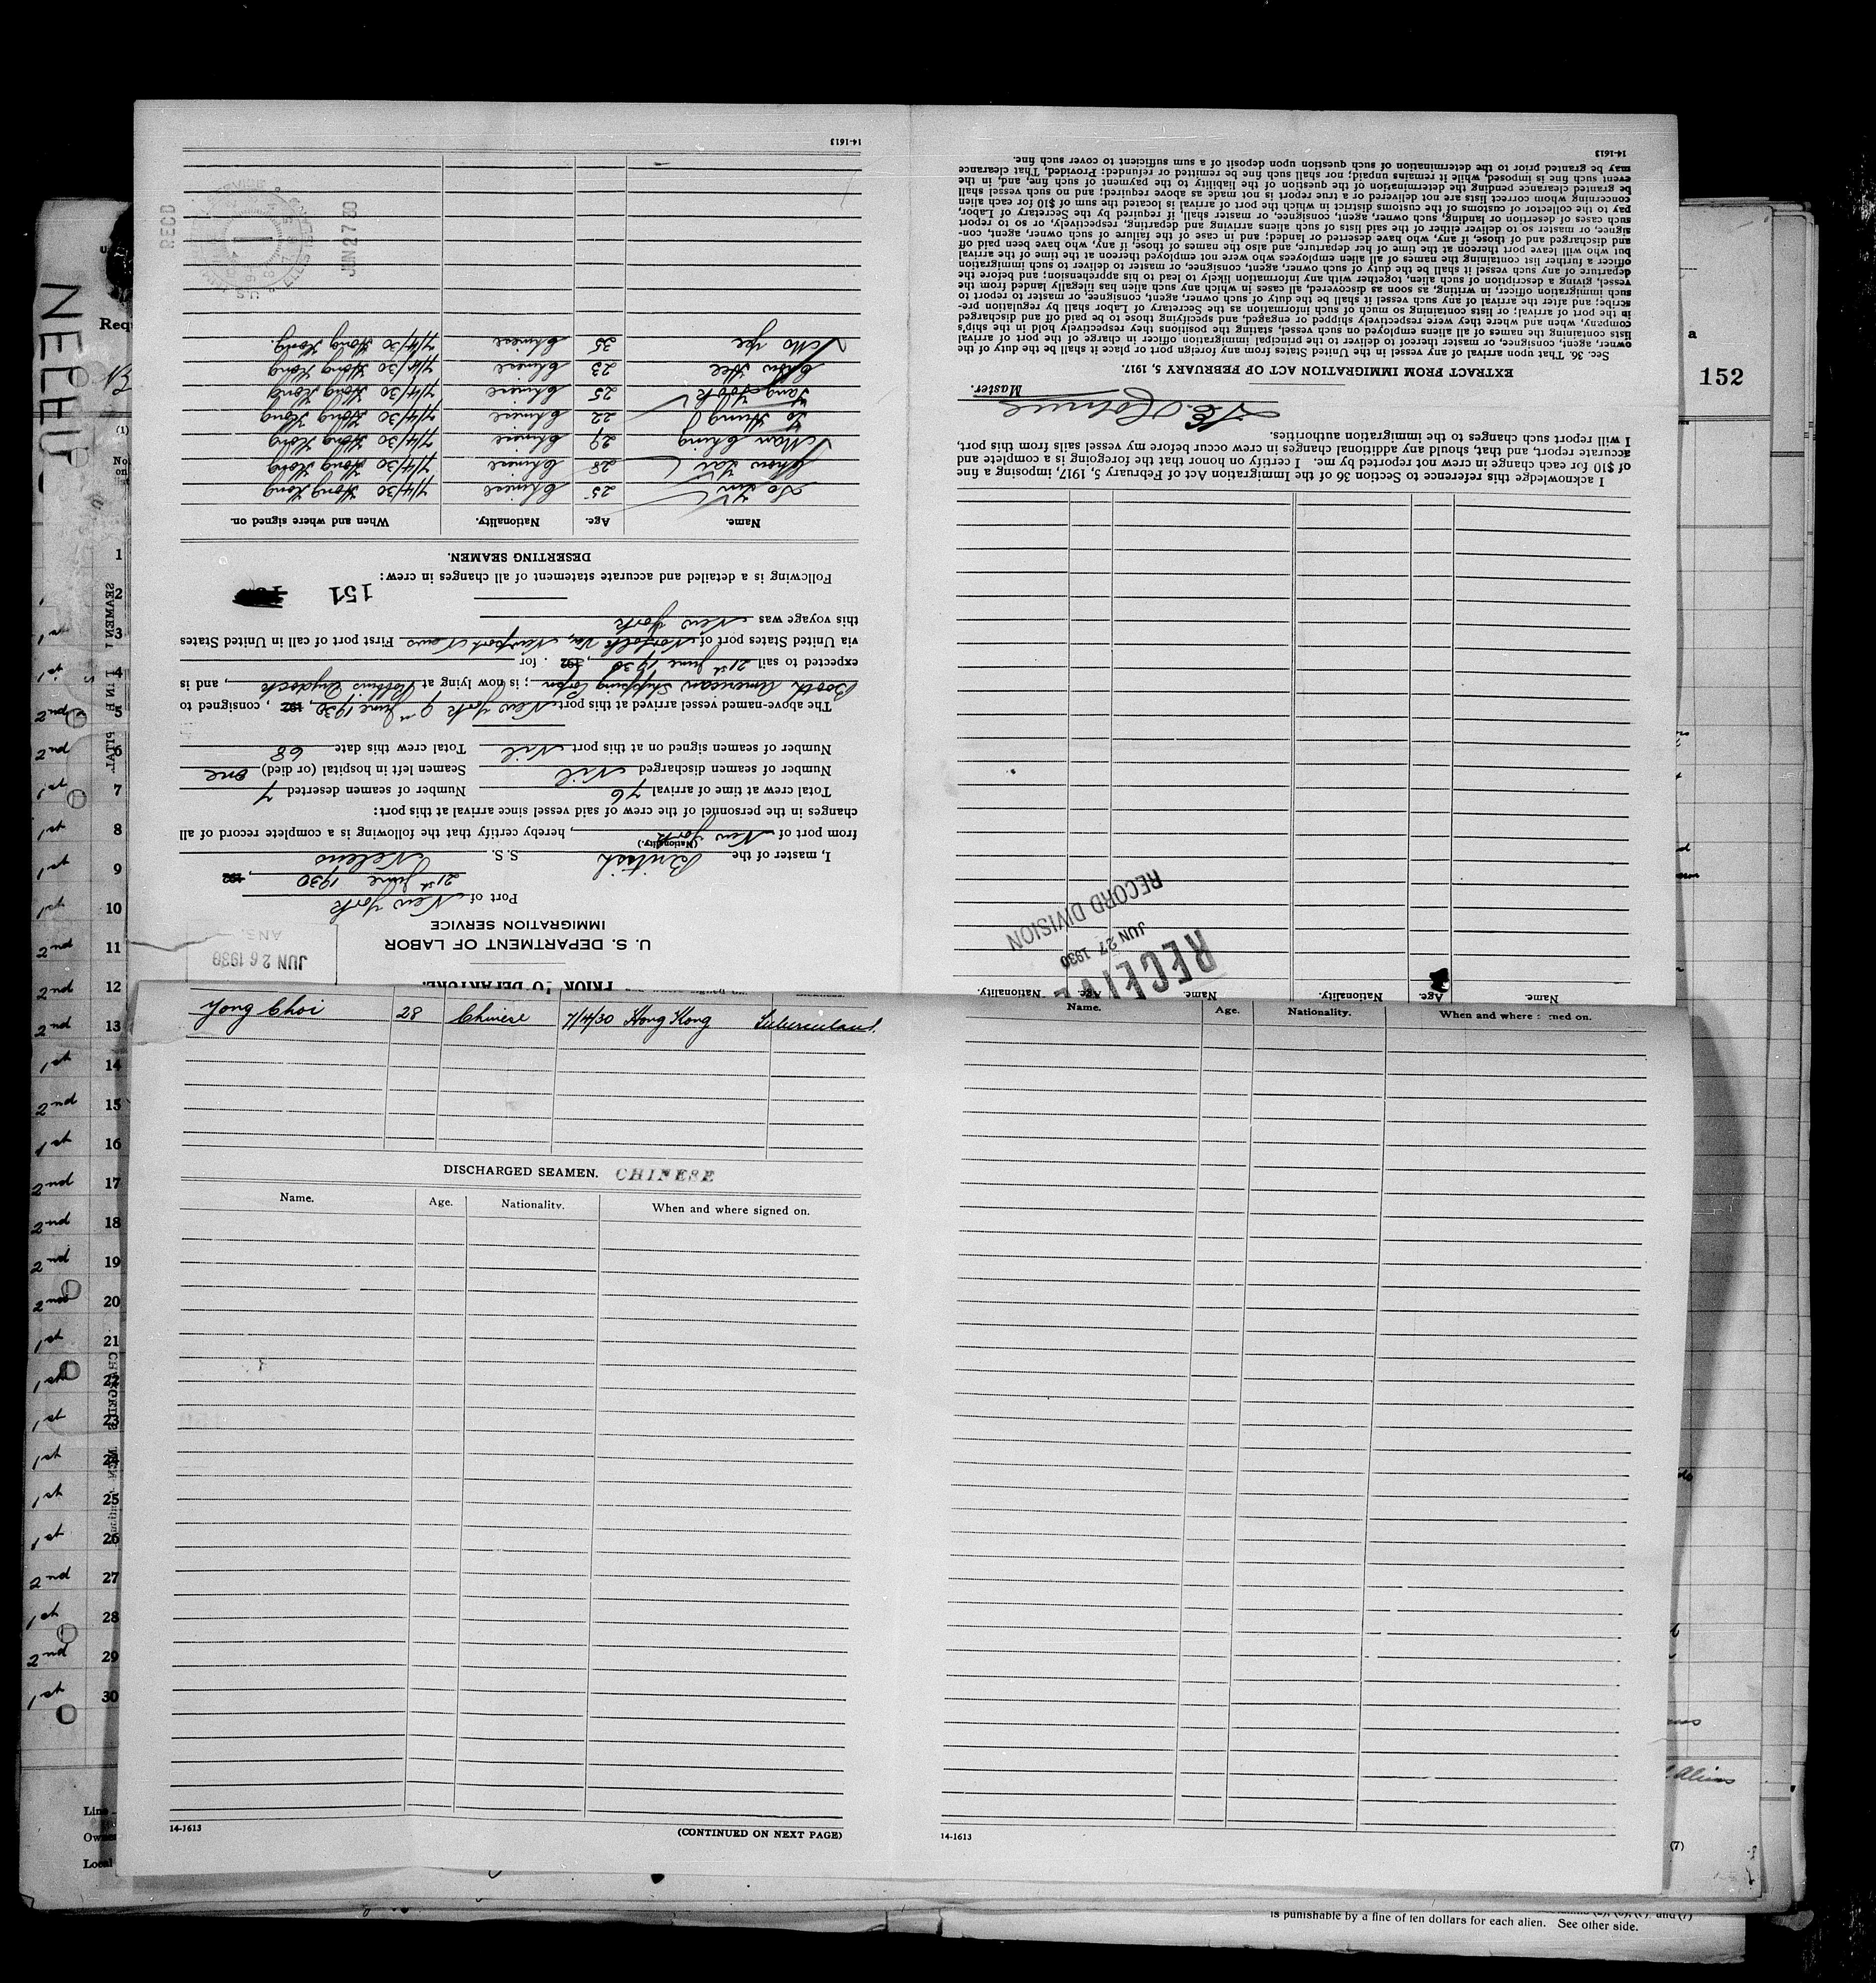 PRIOR TO DEPARTURE.
U. S. DEPARTMENT OF LABOR
IMMIGRATION SERVICE
JUN 26 1930
Port of New York
21st June 1930, 192
I, master of the British S. S. Neleus
(Nationality.)
from port of New York, hereby certify that the following is a complete record of all
changes in the personnel of the crew of said vessel since arrival at this port:
Total crew at time of arrival 76 Number of seamen deserted 7
Number of seamen discharged Nil Seamen left in hospital (or died) one
Number of seamen signed on at this port Nil Total crew this date 68
The above-named vessel arrived at this port New York 9th June 1930, 192, consigned to
Booth American Shipping Corpn; is now lying at Robbins Drydock, and is
expected to sail 21st June 1930, 192. for
via United States port of Norfolk Va, Newport News First port of call in United States
this voyage was New York
Following is a detailed and accurate statement of all changes in crew:
151
DESERTING SEAMEN.
Name. Age. Nationality. When and where signed on.
25 Chinese 7/4/30 Hong Kong
28 Chinese 7/4/30 Hong Kong
Man Ching 29 Chinese 7/4/30 Hong Kong
Lo Hung 22 Chinese 7/4/30 Hong Kong
25 Chinese 7/4/30 Hong Kong
Chow Hee 23 Chinese 7/4/30 Hong Kong
Mo Yee 35 Chinese 7/4/30 Hong Kong.
REC'D
JUN 27 30
14-1613
Name Age. Nationality. Name Age. Nationality.
RECEIVE
JUN 27 1930
RECORD DIVISION
I acknowledge this reference to Section 36 of the Immigration Act of February 5, 1917, imposing a fine
of $10 for each change in crew not reported by me. I certify on honor that the foregoing is a complete and
accurate report, and that, should any additional changes in crew occur before my vessel sails from this port,
I will report such changes to the immigration authorities.
Master.
EXTRACT FROM IMMIGRATION ACT OF FEBRUARY 5, 1917.
Sec. 36. That upon arrival of any vessel in the United States from any foreign port or place it shall be the duty of the
owner, agent, consignee, or master thereof to deliver to the principal immigration officer in charge of the port of arrival
lists containing the names of all aliens employed on such vessel, stating the positions they respectively hold in the ship's
company, when and where they were respectively shipped or engaged, and specifying those to be paid off and discharged
in the port of arrival; or lists containing so much of such information as the Secretary of Labor shall by regulation pre-
scribe; and after the arrival of any such vessel it shall be the duty of such owner, agent, consignee, or master to report to
such immigration officer, in writing, as soon as discovered, all cases in which any such alien has illegally landed from the
vessel, giving a description of such alien, together with any information likely to lead to his apprehension; and before the
departure of any such vessel it shall be the duty of such owner, agent, consignee, or master to deliver to such immigration
officer a further list containing the names of all alien employees who were not employed thereon at the time of the arrival
but who will leave port thereon at the time of her departure, and also the names of those, if any, who have been paid off
and discharged and of those, if any, who have deserted or landed; and in case of the failure of such owner, agent, con-
signee, or master so to deliver either of the said lists of such aliens arriving and departing, respectively, or so to report
such cases of desertion or landing, such owner, agent, consignee, or master shall, if required by the Secretary of Labor,
pay to the collector of customs of the customs district in which the port of arrival is located the sum of $10 for each alien
concerning whom correct lists are not delivered or a true report is not made as above required; and no such vessel shall
be granted clearance pending the determination of the question of the liability to the payment of such fine, and, in the
event such fine is imposed, while it remains unpaid; nor shall such fine be remitted or refunded: Provided, That clearance
may be granted prior to the determination of such question upon deposit of a sum sufficient to cover such fine.
14-1613
Yong Choi 28 Chinese 7/4/30 Hong Kong
DISCHARGED SEAMEN. CHINESE
Name. Age. Nationality. When and where signed on.
14-1613
(CONTINUED ON NEXT PAGE)
Name. Age. Nationality. When and where signed on.
14-1613
152
a
NELEU
Requ
(1)
1
2
1st 3
1st 4
2nd 5
2nd 6
1st 7
1st 8
1st 9
1st 10
2nd 11
2nd 12
2nd 13
1st 14
2nd 15
1st 16
2nd 17
2nd 18
2nd 19
2nd 20
1st 21
1st 22
1st 23
1st 24
1st 25
1st 26
2nd 27
1st 28
2nd 29
1st 30
Line
Owne
Local
Aliens
(7)
is punishable by a fine of ten dollars for each alien. See other side.